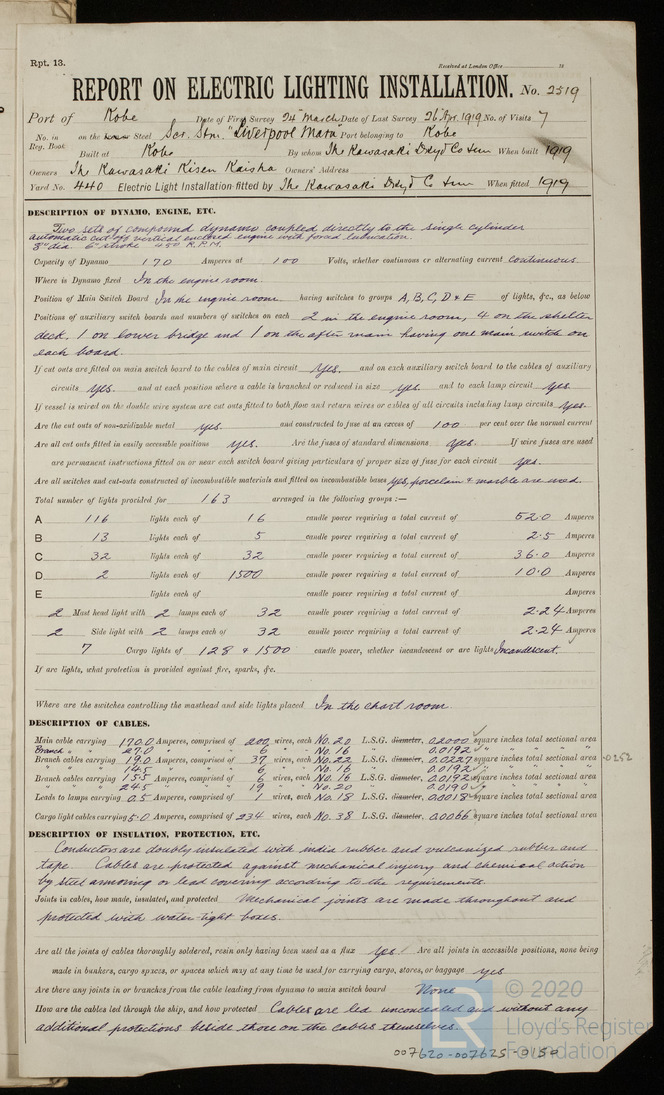 Rpt. 13.
Received at London Office 19
REPORT ON ELECTRIC LIGHTING INSTALLATION. No. 2519
Port of Kobe Date of First Survey 24 March Date of Last Survey 26 Apr. 1919 No. of Visits 7
No. in Reg. Book on the Steel Scr. Stm. "Liverpool Maru" Port belonging to Kobe
Built at Kobe By whom The Kawasaki Dkyd Co Ltd When built 1919
Owners The Kawasaki Kisen Kaisha Owners' Address
Yard No. 440 Electric Light Installation fitted by The Kawasaki Dkyd Co Ltd When fitted 1919
DESCRIPTION OF DYNAMO, ENGINE, ETC.
Two sets of compound dynamo coupled directly to the single cylinder
automatic cut off vertical enclosed engine with forced lubrication.
8" dia. 6" stroke 450 R.P.M.
Capacity of Dynamo 170 Amperes at 100 Volts, whether continuous or alternating current continuous
Where is Dynamo fixed In the engine room.
Position of Main Switch Board In the engine room having switches to groups A, B, C, D & E of lights, &c., as below
Positions of auxiliary switch boards and numbers of switches on each 2 in the engine room, 4 on the shelter
deck, 1 on lower bridge and 1 on the after main having one main switch on
each board.
If cut outs are fitted on main switch board to the cables of main circuit Yes. and on each auxiliary switch board to the cables of auxiliary
circuits yes. and at each position where a cable is branched or reduced in size yes and to each lamp circuit yes.
If vessel is wired on the double wire system are cut outs fitted to both flow and return wires or cables of all circuits including lamp circuits yes.
Are the cut outs of non-oxidizable metal yes. and constructed to fuse at an excess of 100 per cent over the normal current
Are all cut outs fitted in easily accessible positions yes. Are the fuses of standard dimensions yes. If wire fuses are used
are permanent instructions fitted on or near each switch board giving particulars of proper size of fuse for each circuit yes.
Are all switches and cut-outs constructed of incombustible materials and fitted on incombustible bases yes, porcelain & marble are used.
Total number of lights provided for 163 arranged in the following groups :—
A 116 lights each of 16 candle power requiring a total current of 52.0 Amperes
B 13 lights each of 5 candle power requiring a total current of 2.5 Amperes
C 32 lights each of 32 candle power requiring a total current of 36.0 Amperes
D 2 lights each of 1500 candle power requiring a total current of 10.0 Amperes
E lights each of candle power requiring a total current of Amperes
2 Mast head light with 2 lamps each of 32 candle power requiring a total current of 2.24 Amperes
2 Side light with 2 lamps each of 32 candle power requiring a total current of 2.24 Amperes
7 Cargo lights of 128 & 1500 candle power, whether incandescent or arc lights Incandescent.
If arc lights, what protection is provided against fire, sparks, &c.
Where are the switches controlling the masthead and side lights placed In the chart room.
DESCRIPTION OF CABLES.
Main cable carrying 170.0 Amperes, comprised of 200 wires, each No. 20 L.S.G. diameter, 0.2000 square inches total sectional area
Branch " " 27.0 " " " 6 " " No. 16 " " 0.0192 " " " " "
Branch cables carrying 19.0 Amperes, comprised of 37 wires, each No. 22 L.S.G. diameter, 0.0227 square inches total sectional area 0252
" " " 14.5 " " " 6 " " No. 16 " 0.0192 " " " " "
Branch cables carrying 15.5 Amperes, comprised of 6 wires, each No. 16 L.S.G. diameter, 0.0192 square inches total sectional area
" " " 24.5 " " " 19 " " No. 20 " 0.0190 " " " " "
Leads to lamps carrying 0.5 Amperes, comprised of 1 wires, each No. 18 L.S.G. diameter, 0.0018 square inches total sectional area
Cargo light cables carrying 5.0 Amperes, comprised of 234 wires, each No. 38 L.S.G. diameter, 0.0066 square inches total sectional area
DESCRIPTION OF INSULATION, PROTECTION, ETC.
Conductors are doubly insulated with india rubber and vulcanized rubber and
tape. Cables are protected against mechanical injury and chemical action
by steel armoring or lead covering according to the requirements.
Joints in cables, how made, insulated, and protected Mechanical joints are made throughout and
protected with water-tight boxes.
Are all the joints of cables thoroughly soldered, resin only having been used as a flux yes Are all joints in accessible positions, none being
made in bunkers, cargo spaces, or spaces which may at any time be used for carrying cargo, stores, or baggage yes
Are there any joints in or branches from the cable leading from dynamo to main switch board None
How are the cables led through the ship, and how protected Cables are led unconcealed and without any
additional protections beside those on the cables themselves.
LR © 2020
Lloyd's Register
Foundation
007620-007625-0150